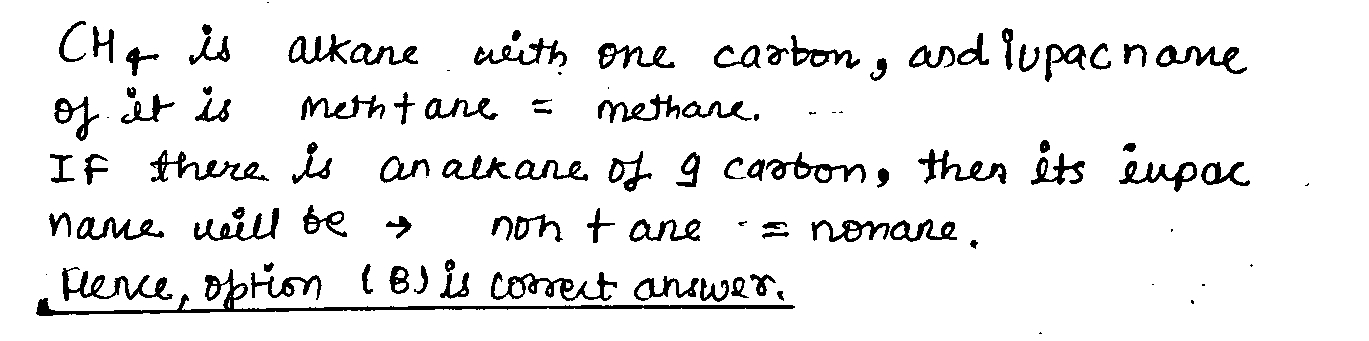 CH4 is alkane with one carbon, and iupac name
of it is meth + ane = methane.
If there is an alkane of 9 carbon, then its iupac
name will be → non + ane = nonane.
Hence, option (B) is correct answer.